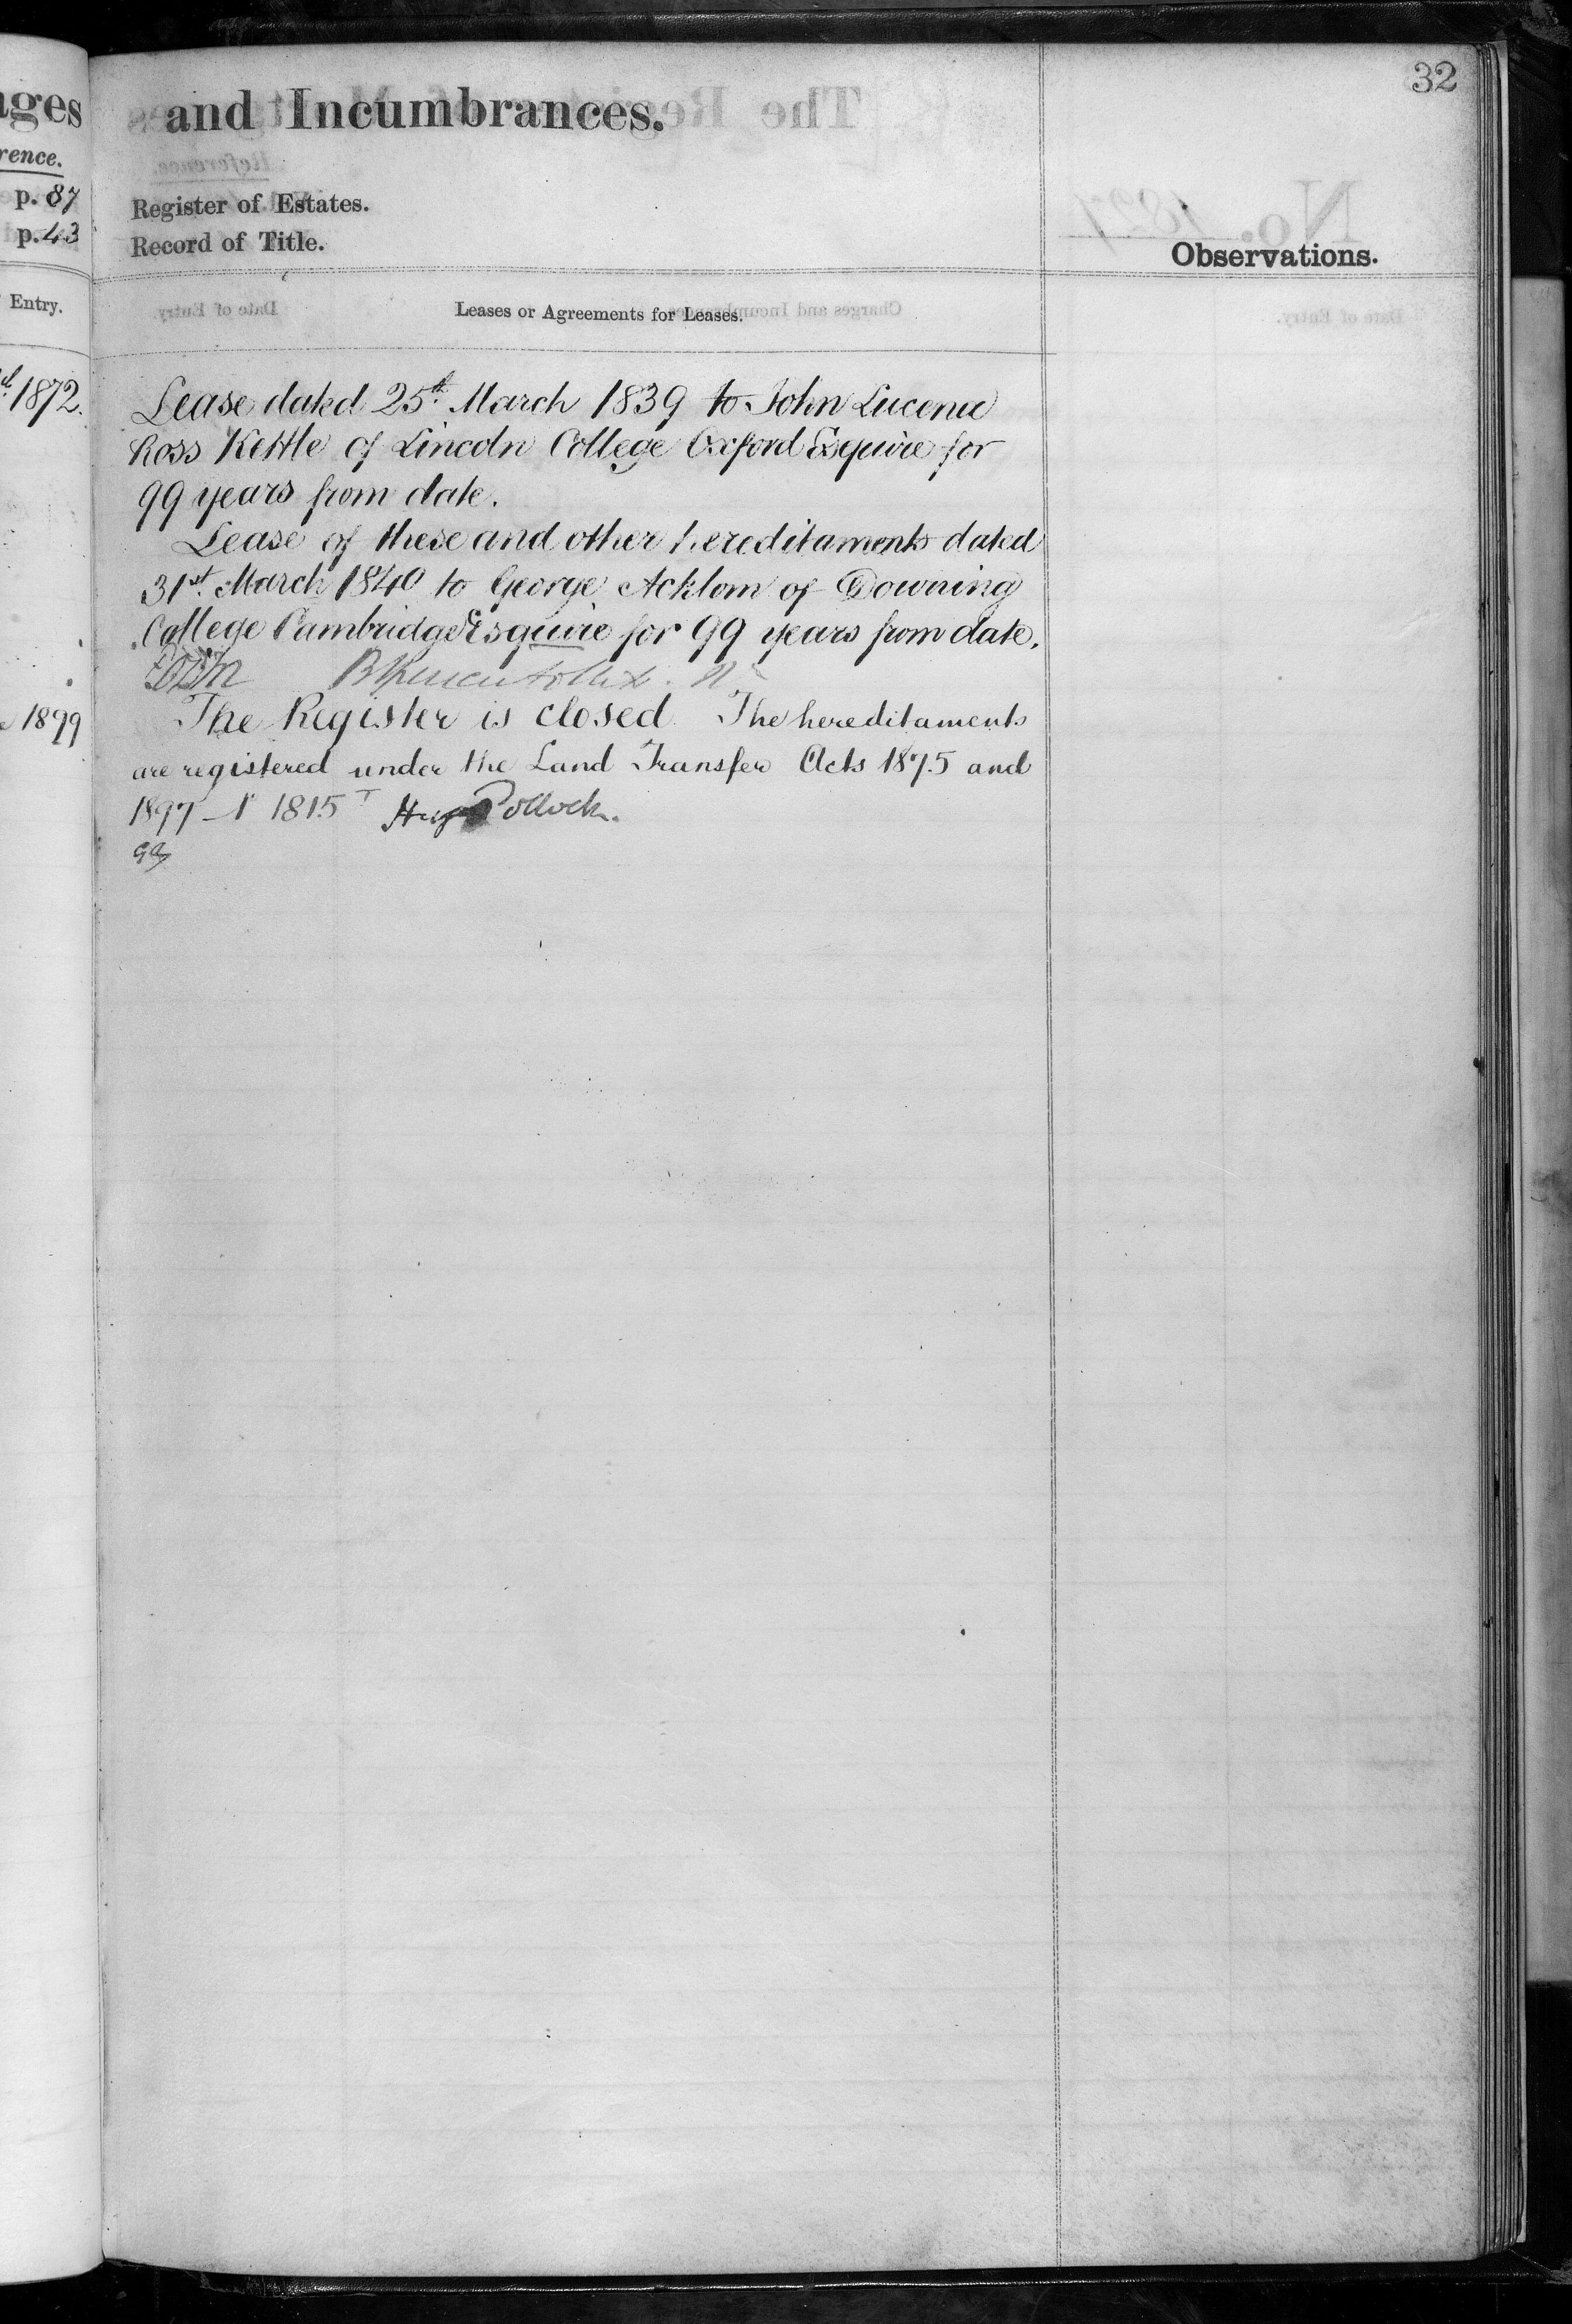 32
and Incumbrances.
Register of Estates.
Record of Title.
Observations.
Leases or Agreements for Leases.
Lease dated 25th. March 1839 to John Lucena
Ross Kettle of Lincoln College Oxford Esquire for
99 years from date.
Lease of these and other hereditaments dated
31st. March 1840 to George Acklom of Downing
College Cambridge Esquire for 99 years from date.
The Register is closed. The hereditaments
are registered under the Land Transfer Acts 1875 and
1897 - No 1815 Hugh Pollock.
ages
rence.
p. 87
p. 43
Entry.
1872.
1899